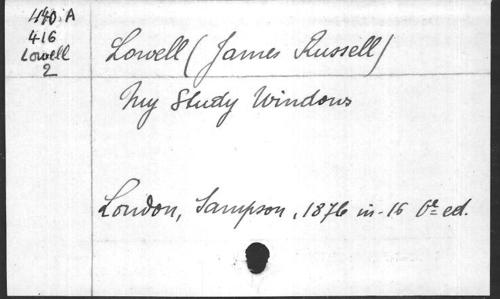 440.A
416
Lowell
2
Lowell (James Russell)
My Study Windows
London, Sampson, 1876 in-16 6e ed.